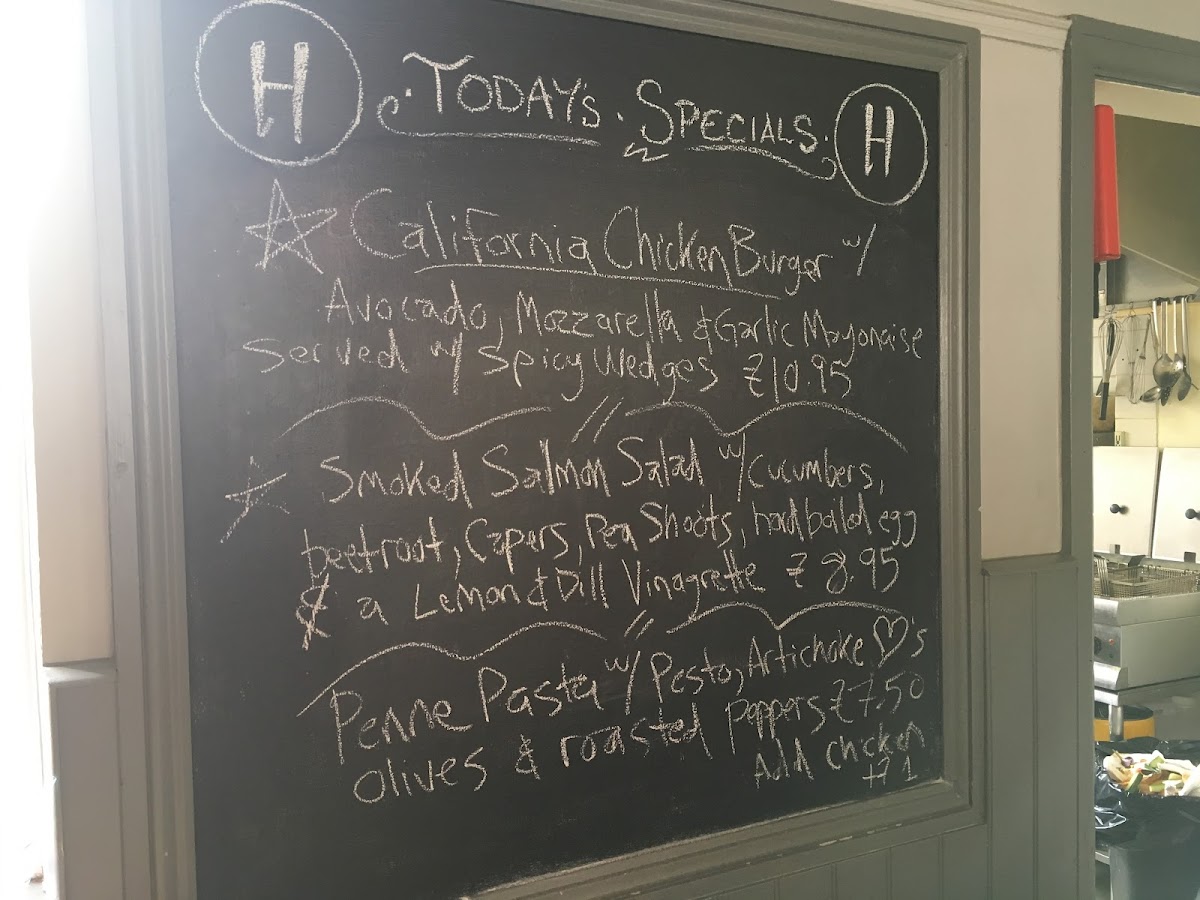 H TODAY'S . SPECIALS. H
California Chicken Burger w/
Avocado, Mozzarella & Garlic Mayonaise
Served w/ Spicy Wedges £10.95
Smoked Salmon Salad w/ Cucumbers,
beetroot, Capers, Pea Shoots, hard boiled egg
& a Lemon & Dill Vinagrette £8.95
Penne Pasta w/ Pesto, Artichoke ♡'s
olives & roasted Peppers £7.50
Add chicken
+£1